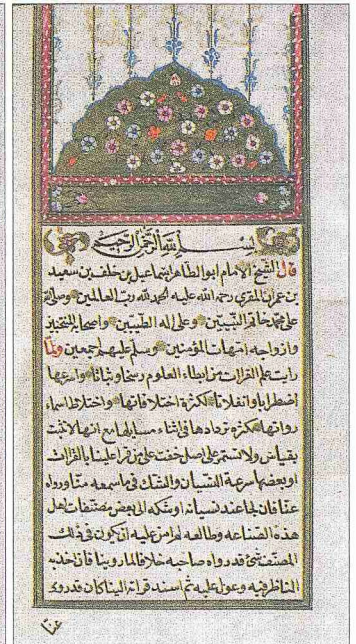 بسم الله الرحمن الرحيم
قال الشيخ الامام ابو الطاهر اسماعيل بن خلف بن سعيد
بن عمران المقرى رحمة الله عليه الحمد لله رب العالمين وصلواته
على محمد خاتم النبيين وعلى اله الطيبين واصحابه المنتخبين
وازواجه امهات المؤمنين وسلم عليهم اجمعين ولما
رايت علم القرات من ابطاء العلوم رسخا وثباتا واسرعها
اضطرابا وانفلاتا لكثرة اختلافاتها واختلاط اسماء
رواتها وكثرة تردادها فى اثناء مسايلها مع انها لا تثبت
بقياس ولا تستمر على اصل خفت على من قرا علينا بالقرات
او بعضها سرعة النسيان والشك فى ما سمعه منا ورواه
عنا فان لجا عند نسيانه او شكه الى بعض مصنفات اهل
هذه الصناعه وطالعه لم امن عليه ان يكون فى ذلك
المصنف شئ قد رواه صاحبه خلافا لما روينا فان اخذ به
الناظر فيه وعول عليه ثم اسند قراته الينا كان قد روى
عنا